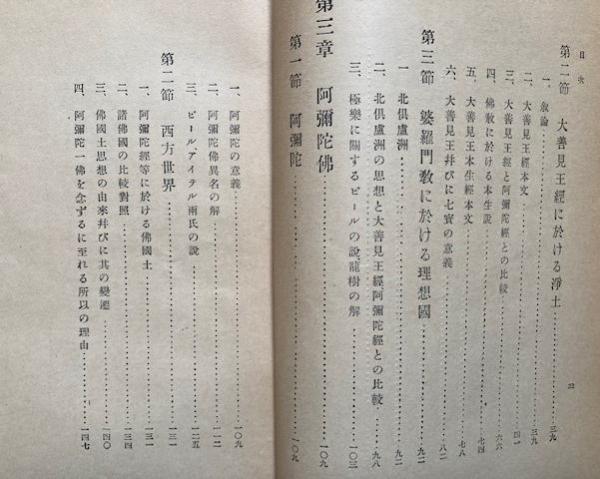 目次
第二節 大善見王經に於ける淨土 三九
一、叙論 三九
二、大善見王經本文 四一
三、大善見王經と阿彌陀經との比較 六六
四、佛敎に於ける本生說 七四
五、大善見王本生經本文 七八
六、大善見王幷びに七寶の意義 八二
第三節 婆羅門敎に於ける理想國 九二
一、北俱盧洲 九二
二、北俱盧洲の思想と大善見王經阿彌陀經との比較 九八
三、極樂に關するビールの說、龍樹の解 一〇三
第三章 阿彌陀佛 一〇九
第一節 阿彌陀 一〇九
一、阿彌陀の意義 一〇九
二、阿彌陀佛異名の解 一一二
三、ビール、アイテル兩氏の說 一二五
第二節 西方世界 一三一
一、阿彌陀經等に於ける佛國土 一三一
二、諸佛國の比較對照 一三四
三、佛國土思想の由來幷びに其の變遷 一四〇
四、阿彌陀一佛を念ずるに至れる所以の理由 一四七